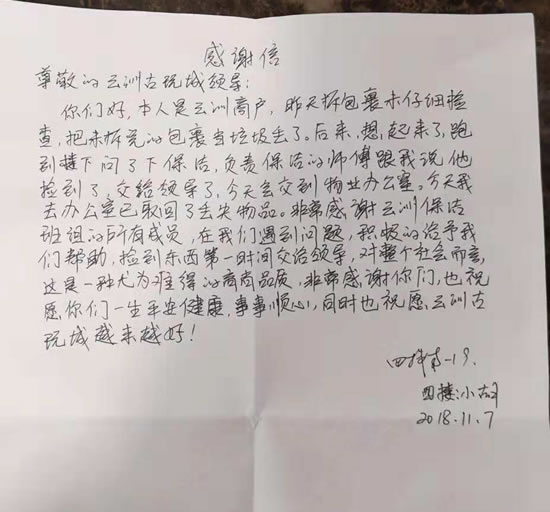 感谢信
尊敬的云洲古玩城领导:
你们好,本人是云洲商户,昨天拆包裹未仔细检
查,把未拆完的包裹当垃圾丢了。后来,想起来了,跑
到楼下问了下保洁,负责保洁的师傅跟我说他
捡到了,交给领导了,今天会交到物业办公室。今天我
去办公室已取回了丢失物品。非常感谢云洲保洁
班组的所有成员,在我们遇到问题,积极的给予我
们帮助,捡到东西第一时间交给领导,对整个社会而言,
这是一种尤为难得的高尚品质,非常感谢你们,也祝
愿你们一生平安健康,事事顺心,同时也祝愿云洲古
玩城越来越好!
-19.
四楼:小
2018.11.7